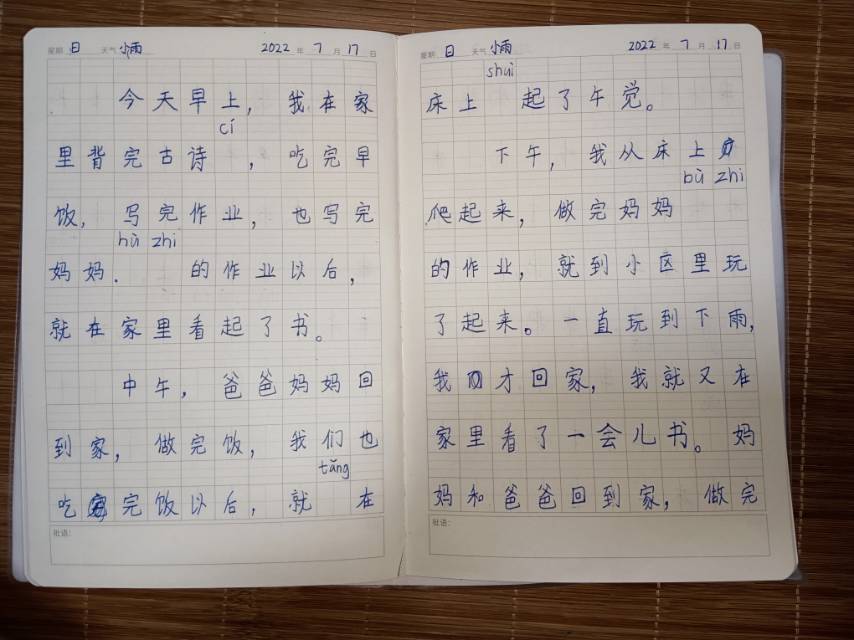 星期 日 天气 小雨 2022 年 7 月 17 日
今天早上，我在家
cí
里背完古诗 ，吃完早
饭，写完作业，也写完
bù zhi
妈妈. 的作业以后，
就在家里看起了书。
中午，爸爸妈妈回
到家，做完饭，我们也
tǎng
吃完饭以后，就 在
批语：
星期 日 天气 小雨 2022 年 7 月 17 日
shuì
床上 起了午觉。
下午，我从床上
bù zhi
爬起来，做完妈妈
的作业，就到小区里玩
了起来。一直玩到下雨，
我才回家，我就又在
家里看了一会儿书。妈
妈和爸爸回到家，做完
批语：